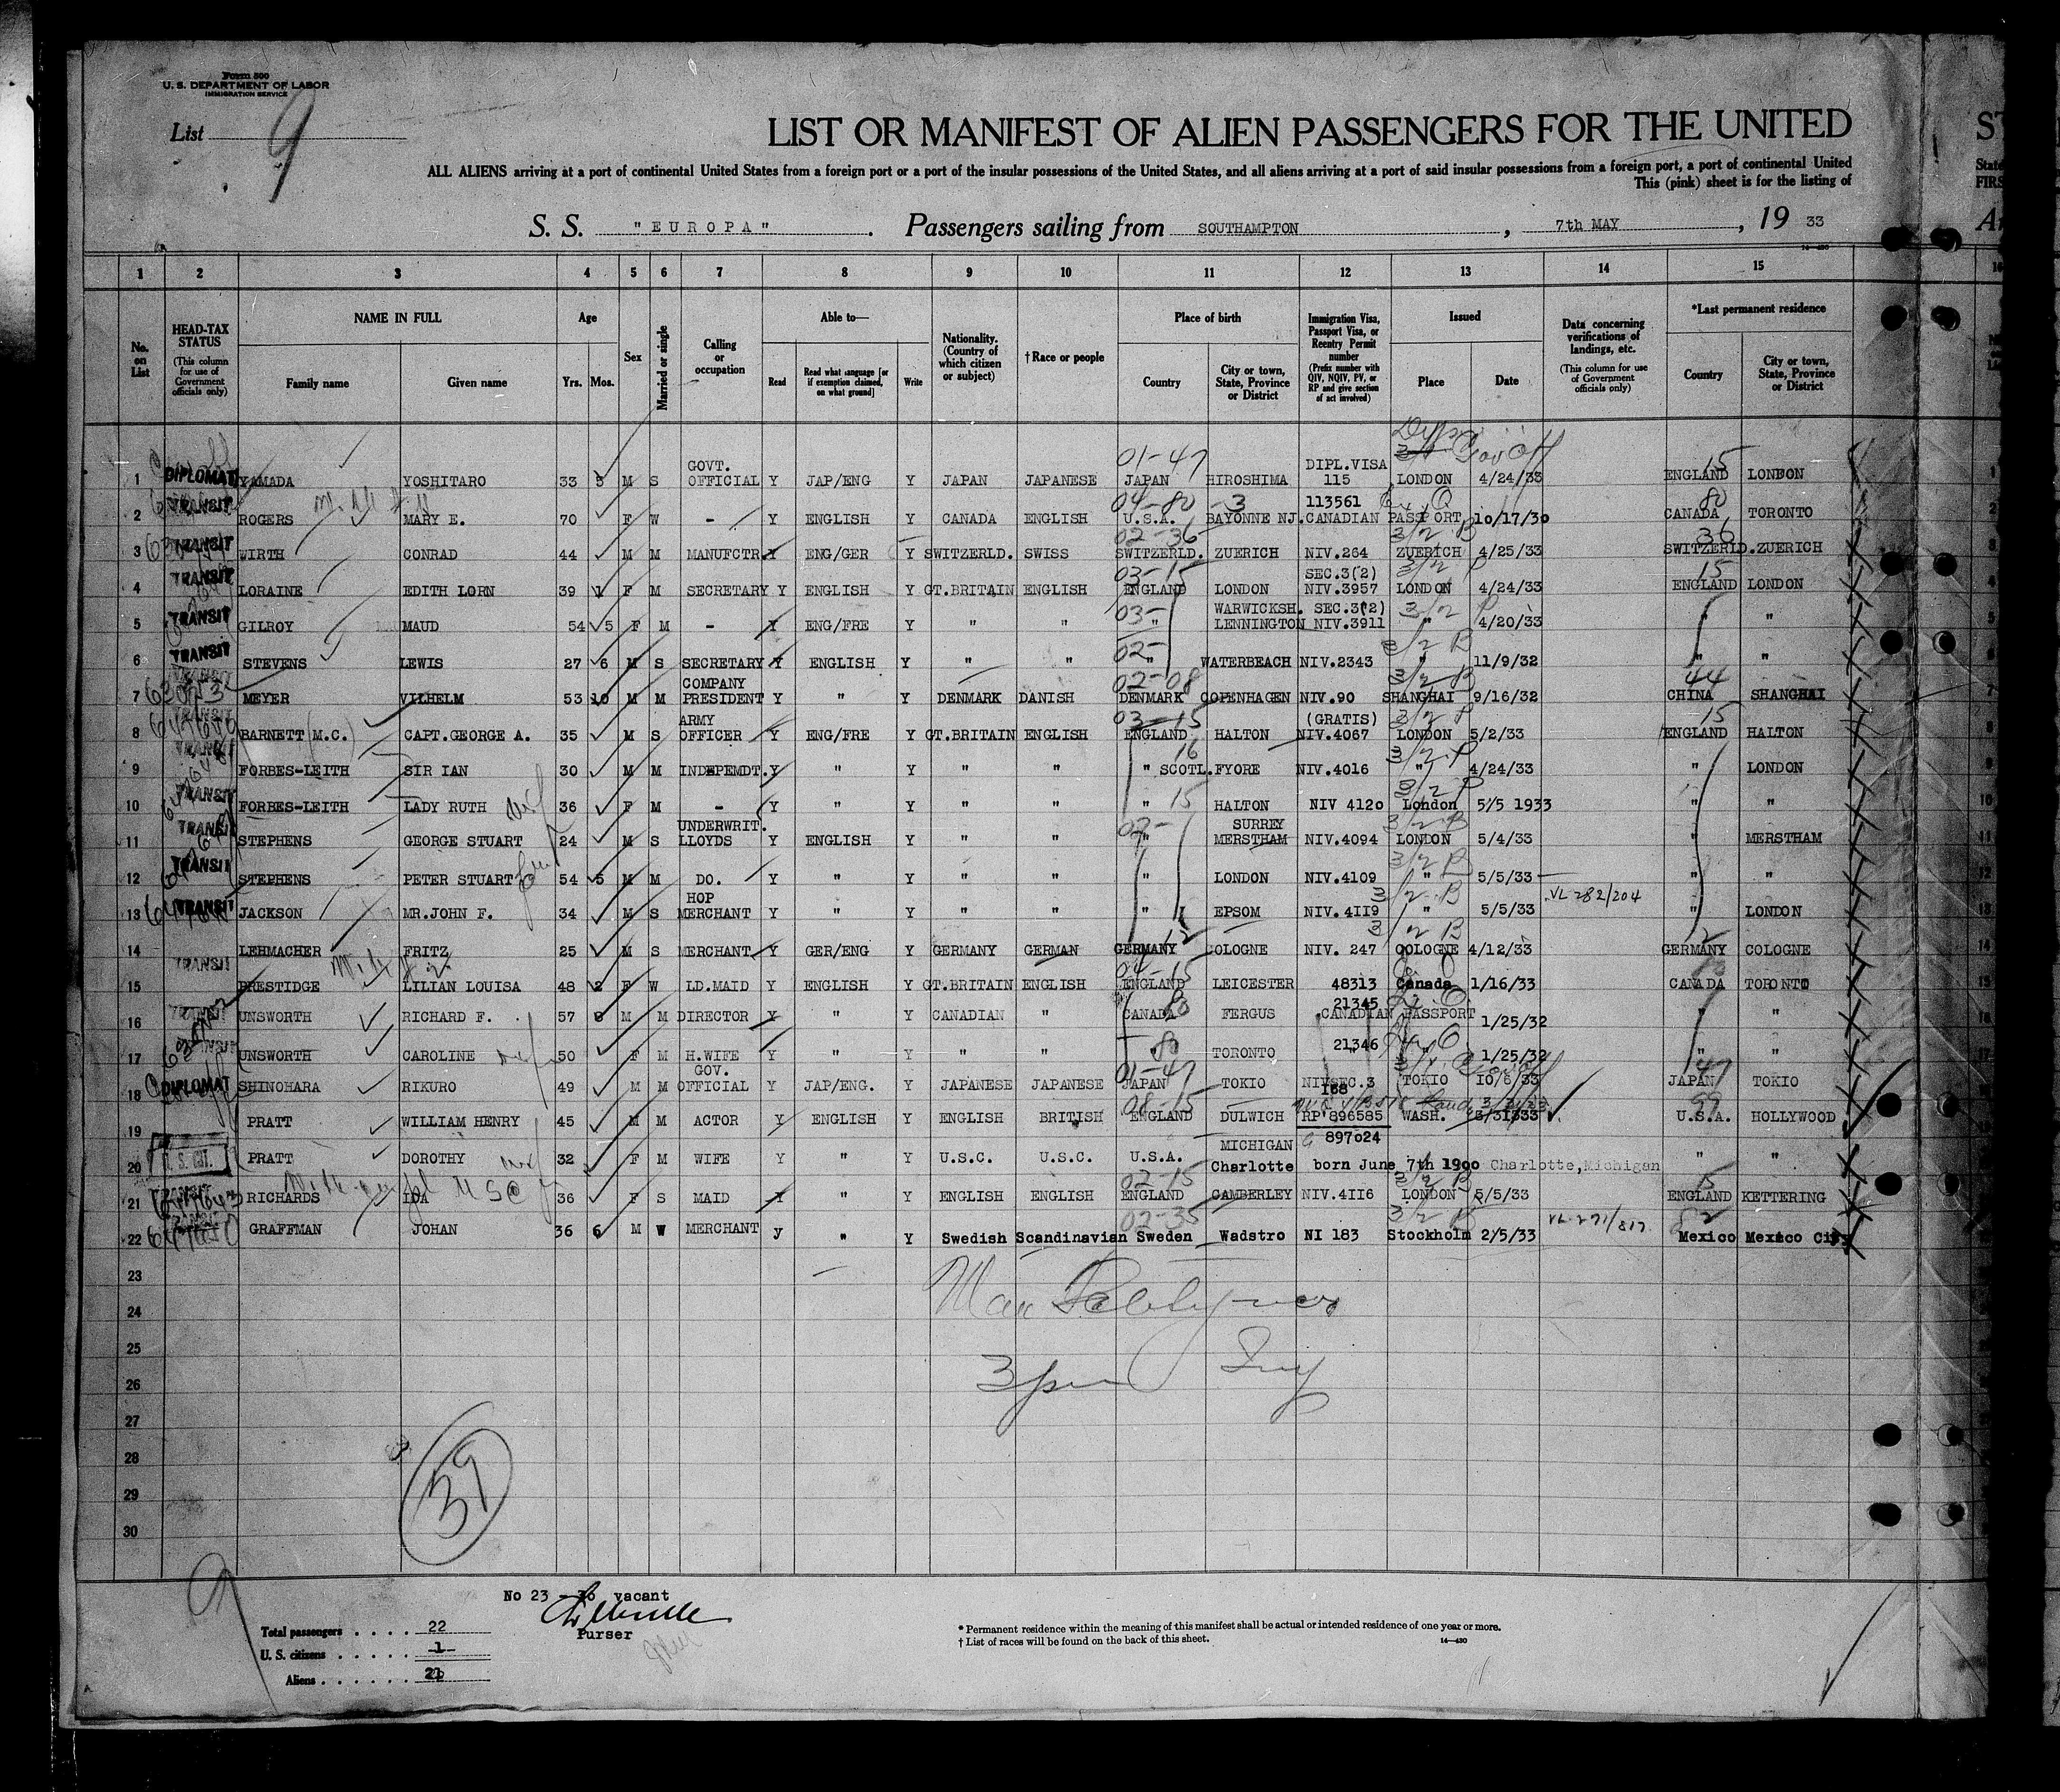 Form 500
U. S. DEPARTMENT OF LABOR
IMMIGRATION SERVICE
List 9
LIST OR MANIFEST OF ALIEN PASSENGERS FOR THE UNITED
ALL ALIENS arriving at a port of continental United States from a foreign port or a port of the insular possessions of the United States, and all aliens arriving at a port of said insular possessions from a foreign port, a port of continental United
This (pink) sheet is for the listing of
S. S. "EUROPA" . Passengers sailing from SOUTHAMPTON , 7th MAY , 19 33
1 2 3 4 5 6 7 8 9 10 11 12 13 14 15
No. on List
HEAD-TAX STATUS (This column for use of Government officials only)
NAME IN FULL Family name Given name
Age Yrs. Mos.
Sex
Married or single
Calling or occupation
Able to— Read Read what language [or if exemption claimed, on what ground] Write
Nationality. (Country of which citizen or subject)
†Race or people
Place of birth Country City or town, State, Province or District
Immigration Visa, Passport Visa, or Reentry Permit number (Prefix number with QIV, NQIV, PV, or RP and give section of act involved)
Issued Place Date
Data concerning verifications of landings, etc. (This column for use of Government officials only)
*Last permanent residence Country City or town, State, Province or District
1 DIPLOMAT YAMADA YOSHITARO 33 5 M S GOVT. OFFICIAL Y JAP/ENG Y JAPAN JAPANESE 01-47 JAPAN HIROSHIMA DIPL.VISA 115 LONDON 4/24/33 15 ENGLAND LONDON
2 TRANSIT ROGERS MARY E. 70 F W - Y ENGLISH Y CANADA ENGLISH 04-80 -3 U.S.A. BAYONNE NJ. 113561 CANADIAN PASSPORT 10/17/30 80 CANADA TORONTO
3 TRANSIT WIRTH CONRAD 44 M M MANUFCTR. Y ENG/GER Y SWITZERLD. SWISS 02-36 SWITZERLD. ZUERICH NIV.264 3/2 B ZUERICH 4/25/33 36 SWITZERLD. ZUERICH
4 TRANSIT LORAINE EDITH LORN 39 1 F M SECRETARY Y ENGLISH Y GT.BRITAIN ENGLISH 03-15 ENGLAND LONDON SEC.3(2) NIV.3957 3/2 P LONDON 4/24/33 15 ENGLAND LONDON
5 TRANSIT GILROY MAUD 54 5 F M - Y ENG/FRE Y " " 03- " WARWICKSH. LENNINGTON SEC.3(2) NIV.3911 3/2 P " 4/20/33 " "
6 TRANSIT STEVENS LEWIS 27 6 M S SECRETARY Y ENGLISH Y " " 02- " WATERBEACH NIV.2343 3/2 B " 11/9/32 " "
7 63073 MEYER VILHELM 53 10 M M COMPANY PRESIDENT Y " Y DENMARK DANISH 02-08 DENMARK COPENHAGEN NIV.90 3/2 B SHANGHAI 9/16/32 44 CHINA SHANGHAI
8 TRANSIT BARNETT (M.C.) CAPT.GEORGE A. 35 M S ARMY OFFICER Y ENG/FRE Y GT.BRITAIN ENGLISH 03-15 ENGLAND HALTON (GRATIS) NIV.4067 3/2 P LONDON 5/2/33 15 ENGLAND HALTON
9 TRANSIT FORBES-LEITH SIR IAN 30 M M INDEPEMDT. Y " Y " " 16 " SCOTL. FYORE NIV.4016 3/2 P " 4/24/33 " LONDON
10 TRANSIT FORBES-LEITH LADY RUTH wf 36 F M - Y " Y " " 15 " HALTON NIV 4120 3/2 P London 5/5 1933 " "
11 TRANSIT STEPHENS GEORGE STUART 24 M S UNDERWRIT. LLOYDS Y ENGLISH Y " " 02- " SURREY MERSTHAM NIV.4094 3/2 B LONDON 5/4/33 " MERSTHAM
12 TRANSIT STEPHENS PETER STUART 54 5 M M DO. Y " Y " " LONDON NIV.4109 3/2 B " 5/5/33 " "
13 TRANSIT JACKSON MR.JOHN F. 34 M S HOP MERCHANT Y " Y " " " EPSOM NIV. 4119 3/2 B " 5/5/33 VL 282/204 " LONDON
14 LEHMACHER FRITZ 25 M S MERCHANT Y GER/ENG Y GERMANY GERMAN 12 GERMANY COLOGNE NIV. 247 3/2 B COLOGNE 4/12/33 GERMANY COLOGNE
15 TRANSIT PRESTIDGE LILIAN LOUISA 48 2 F W LD.MAID Y ENGLISH Y GT.BRITAIN ENGLISH 04-15 ENGLAND LEICESTER 48313 Canada 1/16/33 CANADA TORONTO
16 UNSWORTH RICHARD F. 57 8 M M DIRECTOR Y " Y CANADIAN " 80 CANADA FERGUS 21345 CANADIAN PASSPORT 1/25/32 " "
17 UNSWORTH CAROLINE wife 50 F M H.WIFE Y " Y " " 80 " TORONTO 21346 " " 1/25/32 " "
18 DIPLOMAT SHINOHARA RIKURO 49 M M GOV. OFFICIAL Y JAP/ENG. Y JAPANESE JAPANESE 01-47 JAPAN TOKIO NIVSEC.3 168 TOKIO 10/6/33 47 JAPAN TOKIO
19 PRATT WILLIAM HENRY 45 M M ACTOR Y ENGLISH Y ENGLISH BRITISH 08-15 ENGLAND DULWICH RP 896585 WASH. 3/31333 99 U.S.A. HOLLYWOOD
20 PRATT DOROTHY wf 32 F M WIFE Y " Y U.S.C. U.S.C. U.S.A. MICHIGAN Charlotte 897024 born June 7th 1900 Charlotte,Michigan " "
21 TRANSIT RICHARDS IDA 36 F S MAID Y " Y ENGLISH ENGLISH 02-15 ENGLAND CAMBERLEY NIV.4116 3/2 B LONDON 5/5/33 15 ENGLAND KETTERING
22 GRAFFMAN JOHAN 36 6 M W MERCHANT y " Y Swedish Scandinavian 02-35 Sweden Wadstro NI 183 3/2 B Stockholm 2/5/33 VL-271/817 82 Mexico Mexico City
23
24
25
3pm
26
27
28
29
39
30
No 23 - 30 vacant
Purser
Total passengers . . . . 22
U. S. citizens . . . . . 1
Aliens . . . . . . 21
* Permanent residence within the meaning of this manifest shall be actual or intended residence of one year or more.
† List of races will be found on the back of this sheet.
14—430